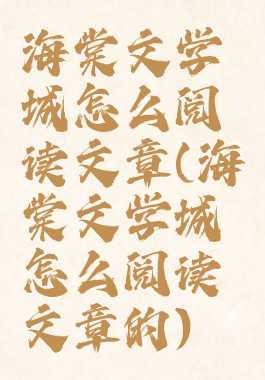 海棠文学
城怎么阅
读文章(海
棠文学城
怎么阅读
文章的)